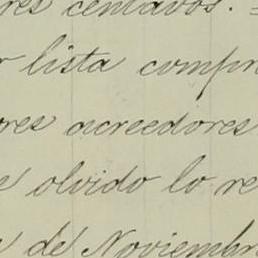 res centavos.
r lista compr
ores acreedores
e olvido lo re
de Noviembr